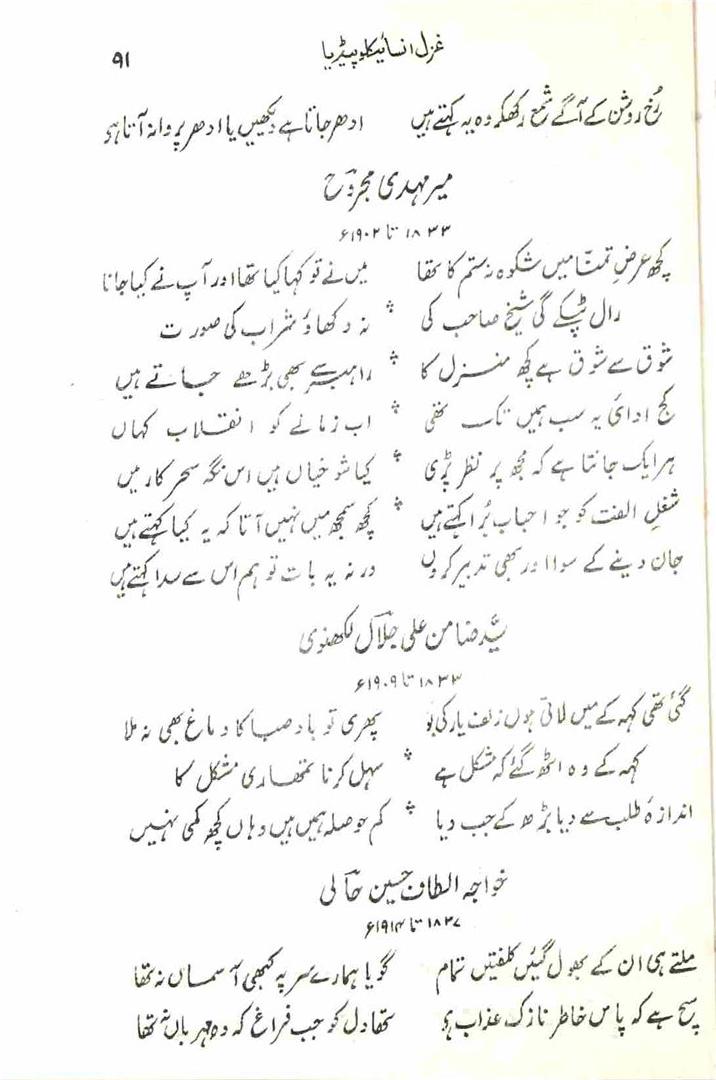 غزل انسائیکلوپیڈیا ۹۱
رُخِ روشن کے آگے شمع رکھکر وہ یہ کہتے ہیں ادھر جاتا ہے دیکھیں یا ادھر پروانہ آتا ہو
میر مہدی مجروحؔ
۱۸۳۳ تا ۱۹۰۲ء
کچھ عرضِ تمنّا میں شکوہ نہ ستم کا تھا میں نے تو کہا کیا تھا اور آپ نے کیا جانا
رال ٹپکے گی شیخ صاحب کی نہ دکھاؤ شراب کی صورت
شوق سے شوق ہے کچھ منزل کا راہبر سے بھی بڑھے جاتے ہیں
کج ادائی یہ سب ہمیں تک تھی اب زمانے کو انقلاب کہاں
ہر ایک جانتا ہے کہ مجھ پر نظر پڑی کیا شوخیاں ہیں اس نگہ سحر کار میں
شغلِ الفت کو جو احباب بُرا کہتے ہیں کچھ سمجھ میں نہیں آتا کہ یہ کیا کہتے ہیں
جان دینے کے سوا اور بھی تدبیر کروں ورنہ یہ بات تو ہم اس سے سدا کہتے ہیں
سیّد ضامن علی جلالؔ لکھنوی
۱۸۳۳ تا ۱۹۰۹ء
گئی تھی کہہ کے میں لاتی ہوں زلفِ یار کی بو پھری تو بادِ صبا کا دماغ بھی نہ ملا
کہہ کے وہ اٹھ گئے کہ مشکل ہے سہل کرنا تمھاری مشکل کا
اندازۂ طلب سے دیا بڑھ کے جب دیا کم حوصلہ ہمیں ہیں وہاں کچھ کمی نہیں
خواجہ الطاف حسین حالیؔ
۱۸۳۷ تا ۱۹۱۴ء
ملتے ہی ان کے بھول گئیں کلفتیں تمام گویا ہمارے سر پہ کبھی آسماں نہ تھا
سچ ہے کہ پاسِ خاطرِ نازک عذاب ہو تھا دل کو جب فراغ کہ وہ مہرباں نہ تھا